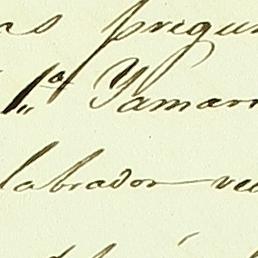 as pregun
1ª Yamarr
labrador vec